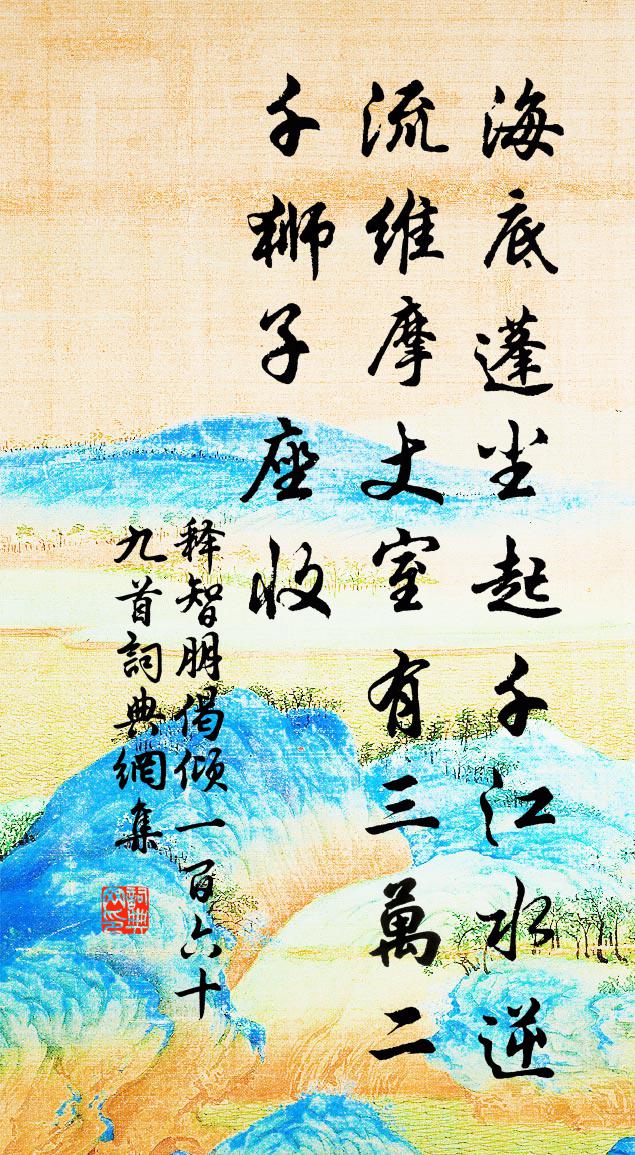 海底蓬尘起千江水逆
流維摩丈室有三萬二
千獅子座收
释智朋偈傾一百六十
九首詞典網集